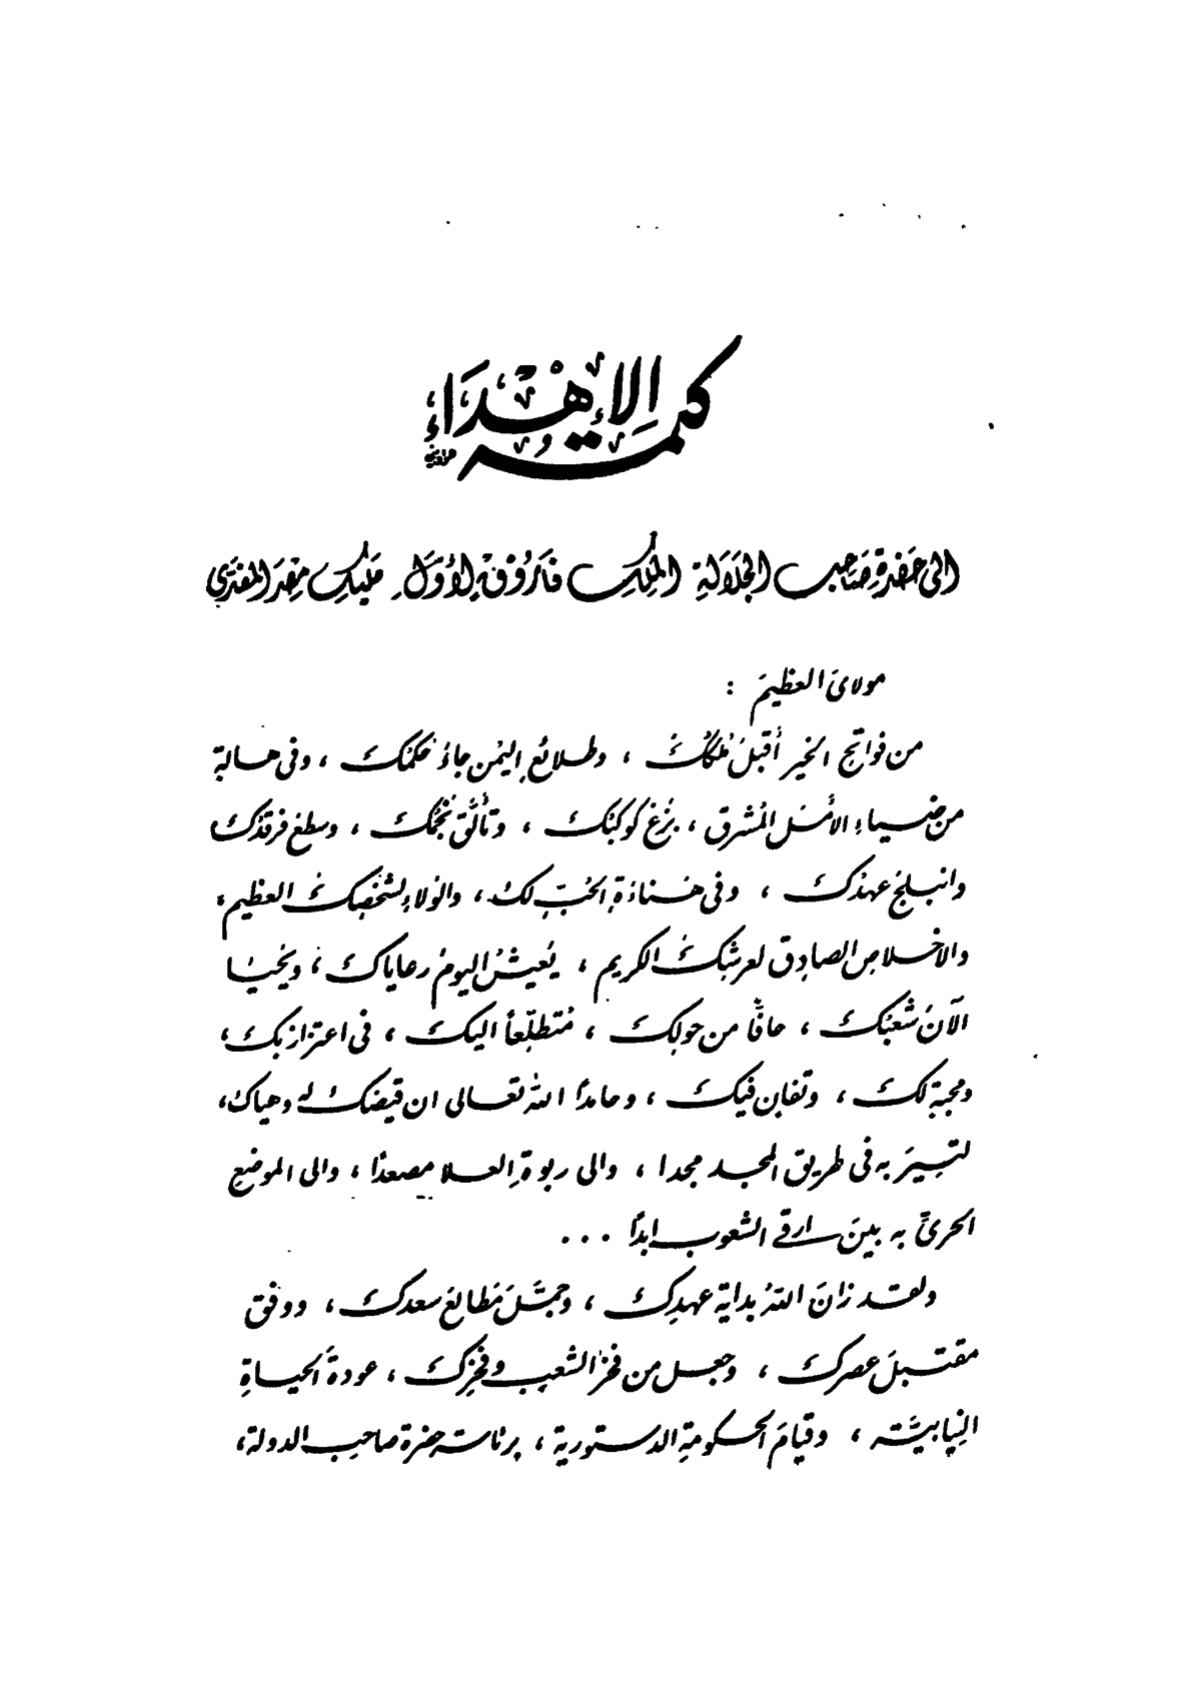 كلمة الإهداء
الى حضرة صاحب الجلالة الملك فاروق الأول مليك مصر المفدى
مولاىَ العظيمَ :
من فواتح الخير أقبلَ مُلكُكَ ، وطلائع اليُمن جاءَ حُكمُكَ ، وفى هالة
من ضياءِ الأمَل المُشرق ، بزَغ كوكبُكَ ، وتألَّق نجمُكَ ، وسطع فرقدُكَ
وانبلج عهدُكَ ، وفى هناءَةِ الحُبِّ لكَ ، والولاءِ لشخصِكَ العظيم ،
والاخلاصِ الصادِق لعرشِكَ الكريم ، يَعيشُ اليومَ رعاياكَ ، ويَحيَا
الآنَ شعبُكَ ، حافًّا من حولِكَ ، مُتطلّعاً اليكَ ، فى اعتزازٍ بكَ ،
ومحبّةٍ لكَ ، وتفانٍ فيكَ ، وحامداً اللهَ تعالى ان قيّضكَ له وهيأكَ ،
لتسيرَ به فى طريق المجد مجدا ، والى ربوةِ العلا مصعدًا ، والى الموضع
الحرىِّ به بينَ ارقى الشعوب ابدًا ...
ولقد زانَ اللهُ بدايةَ عهدِكَ ، وجمَّلَ مَطالعَ سعدكَ ، ووفق
مقتبلَ عصركَ ، وجعل من فخر الشعب وفخرِكَ ، عودةَ الحياةِ
النِيابيَّة ، وقيامَ الحكومةِ الدستورية ، برئاسة حضرة صاحب الدولة ،